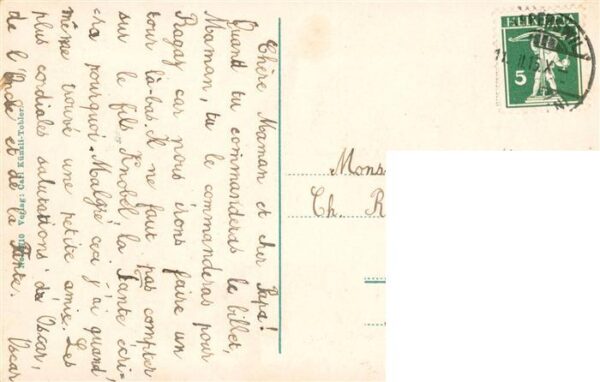 Chère Maman et cher Papa!
Quand tu commanderas le billet,
Maman, tu le commanderas pour
Ragaz, car nous irons faire un
tour là-bas. Il ne faut pas compter
sur le fils Knobel, la tante écri-
ra pourquoi. Malgré ceci j'ai quand
même trouvé une petite amie. Les
plus cordiales salutations d'Oscar,
de l'Oncle et de la Tante.
Oscar
Verlag: Carl Künzli-Tobler
Mons
Ch. R
HELVETIA
5